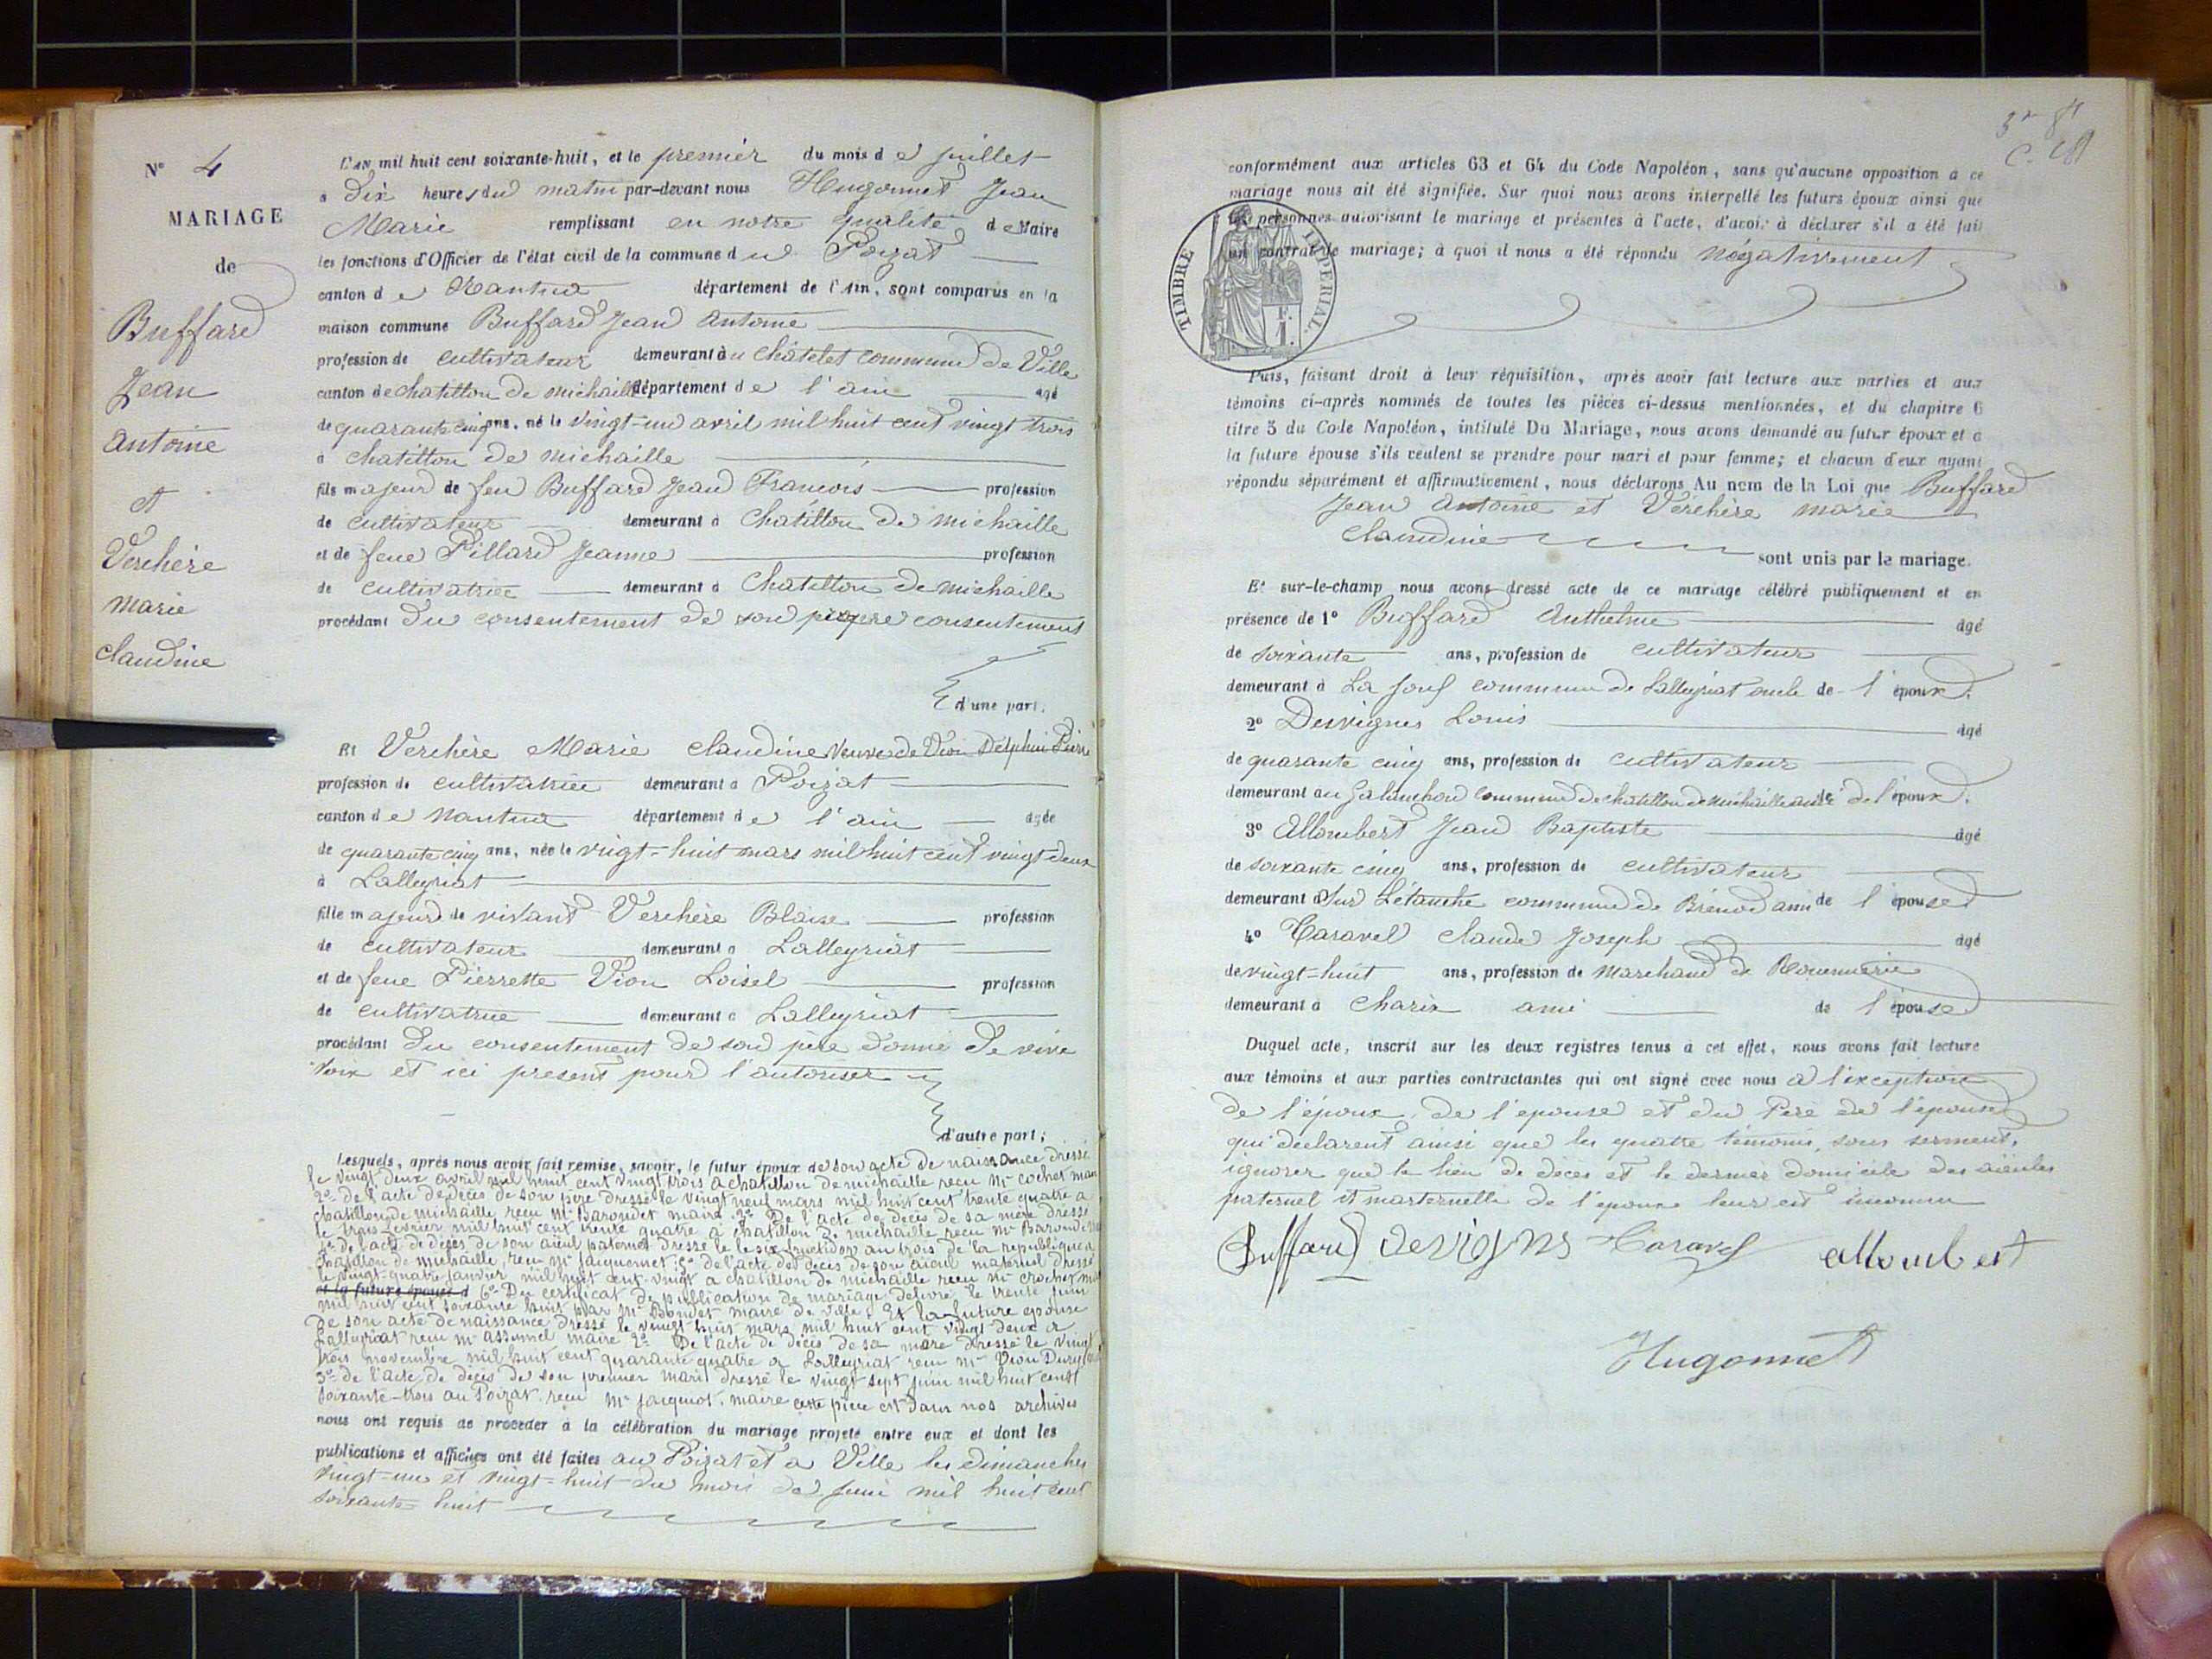 N° 4
MARIAGE
de
Buffard
Jean
Antoine
et
Verchère
Marie
Claudine
L'an mil huit cent soixante-huit, et le premier du mois de juillet
à Dix heures du matin par-devant nous Hugonnet Jean
Marie remplissant en notre qualité de Maire
les fonctions d'Officier de l'état civil de la commune du Poizat
canton de Nantua département de l'Ain, sont comparus en la
maison commune Buffard Jean Antoine
profession de cultivateur demeurant au Châtelet commune de Ville
canton de Chatillon de Michaille département de l'ain agé
de quarante cinq ans, né le vingt-un avril mil huit cent vingt trois
à Chatillon de Michaille
fils majeur de feu Buffard Jean François profession
de cultivateur demeurant à Chatillon de Michaille
et de feue Pillard Jeanne profession
de cultivatrice demeurant à Chatillon de Michaille
procédant du consentement de son propre consentement
d'une part.
Et Verchère Marie Claudine Veuve de Vion Delphin Pierre
profession de cultivatrice demeurant à Poizat
canton de Nantua département de l'ain agée
de quarante cinq ans, née le vingt-huit mars mil huit cent vingt deux
à Lalleyriat
fille majeure de vivant Verchère Blaise profession
de cultivateur demeurant à Lalleyriat
et de feue Pierrette Vion Loisel profession
de cultivatrice demeurant à Lalleyriat
procédant du consentement de son père donné de vive
voix et ici présent pour l'autoriser
d'autre part;
Lesquels, après nous avoir fait remise, savoir, le futur époux de son acte de naissance dressé
le vingt deux avril mil huit cent vingt trois a chatillon de michaille recu Mr cochet maire
2° de l'acte de décès de son père dressé le vingt neuf mars mil huit cent trente quatre a
chatillon de michaille, recu Mr Baroudet maire. 3° De l'acte de décès de sa mère dressé
le trois fevrier mil huit cent trente quatre à chatillon de michaille recu Mr
4° de l'acte de décès de son aïeul paternel dressé le six fructidor an trois de la republique a
chatillon de michaille, recu Mr Jacquemet; 5° de l'acte de décès de son aïeul maternel dressé
le vingt-quatre janvier mil huit cent vingt a chatillon de michaille recu Mr crochet
et la future épouse d 6° Du certificat de publication de mariage délivré le trente juin
mil huit cent soixante huit par Mr Bondet maire de ville. Et la future epouse
de son acte de naissance dressé le vingt huit mars mil huit cent vingt deux a
Lalleyriat recu Mr maire 2° De l'acte de décès de sa mère dressé le vingt
trois novembre mil huit cent quarante quatre a Lalleyriat recu Mr Vion
3° de l'acte de décès de son premier mari dressé le vingt sept juin mil huit cent
soixante-trois au Poizat recu Mr Jacquiot, maire cette pièce est dans nos archives
nous ont requis de procéder à la célébration du mariage projeté entre eux et dont les
publications et affiches ont été faites au Poizat et a Ville les dimanches
vingt-un et vingt-huit du mois de juin mil huit cent
soixante huit
conformément aux articles 63 et 64 du Code Napoléon, sans qu'aucune opposition à ce
mariage nous ait été signifiée. Sur quoi nous avons interpellé les futurs époux ainsi que
les personnes autorisant le mariage et présentes à l'acte, d'avoir à déclarer s'il a été fait
un contrat de mariage; à quoi il nous a été répondu négativement
TIMBRE IMPERIAL.
Puis, faisant droit à leur réquisition, après avoir fait lecture aux parties et aux
témoins ci-après nommés de toutes les pièces ci-dessus mentionnées, et du chapitre 6
titre 5 du Code Napoléon, intitulé Du Mariage, nous avons demandé au futur époux et à
la future épouse s'ils veulent se prendre pour mari et pour femme; et chacun d'eux ayant
répondu séparément et affirmativement, nous déclarons Au nom de la Loi que Buffard
Jean Antoine et Verchère marie
Claudine
sont unis par le mariage.
Et sur-le-champ nous avons dressé acte de ce mariage célébré publiquement et en
présence de 1° Buffard Anthelme agé
de soixante ans, profession de cultivateur
demeurant à La commune de Lalleyriat oncle de l'époux.
2° Desvignes Louis agé
de quarante cinq ans, profession de cultivateur
demeurant au commune de chatillon de michaille ami de l'époux.
3° Allombert Jean Baptiste agé
de soixante cinq ans, profession de cultivateur
demeurant à Sur Létanche commune de Brénod ami de l'épouse
4° Caravel Claude Joseph agé
de vingt-huit ans, profession de Marchand de Rouennerie
demeurant à Charix ami de l'épouse
Duquel acte, inscrit sur les deux registres tenus à cet effet, nous avons fait lecture
aux témoins et aux parties contractantes qui ont signé avec nous à l'exception
de l'époux, de l'epouse et du Père de l'épouse
qui declarent ainsi que les quatre témoins, sous serment,
ignorer que le lieu de décès et le dernier domicile des aïeules
paternel et marternelle de l'epoux leur est inconnu
Buffard Devigns Caravel allombert
Hugonnet